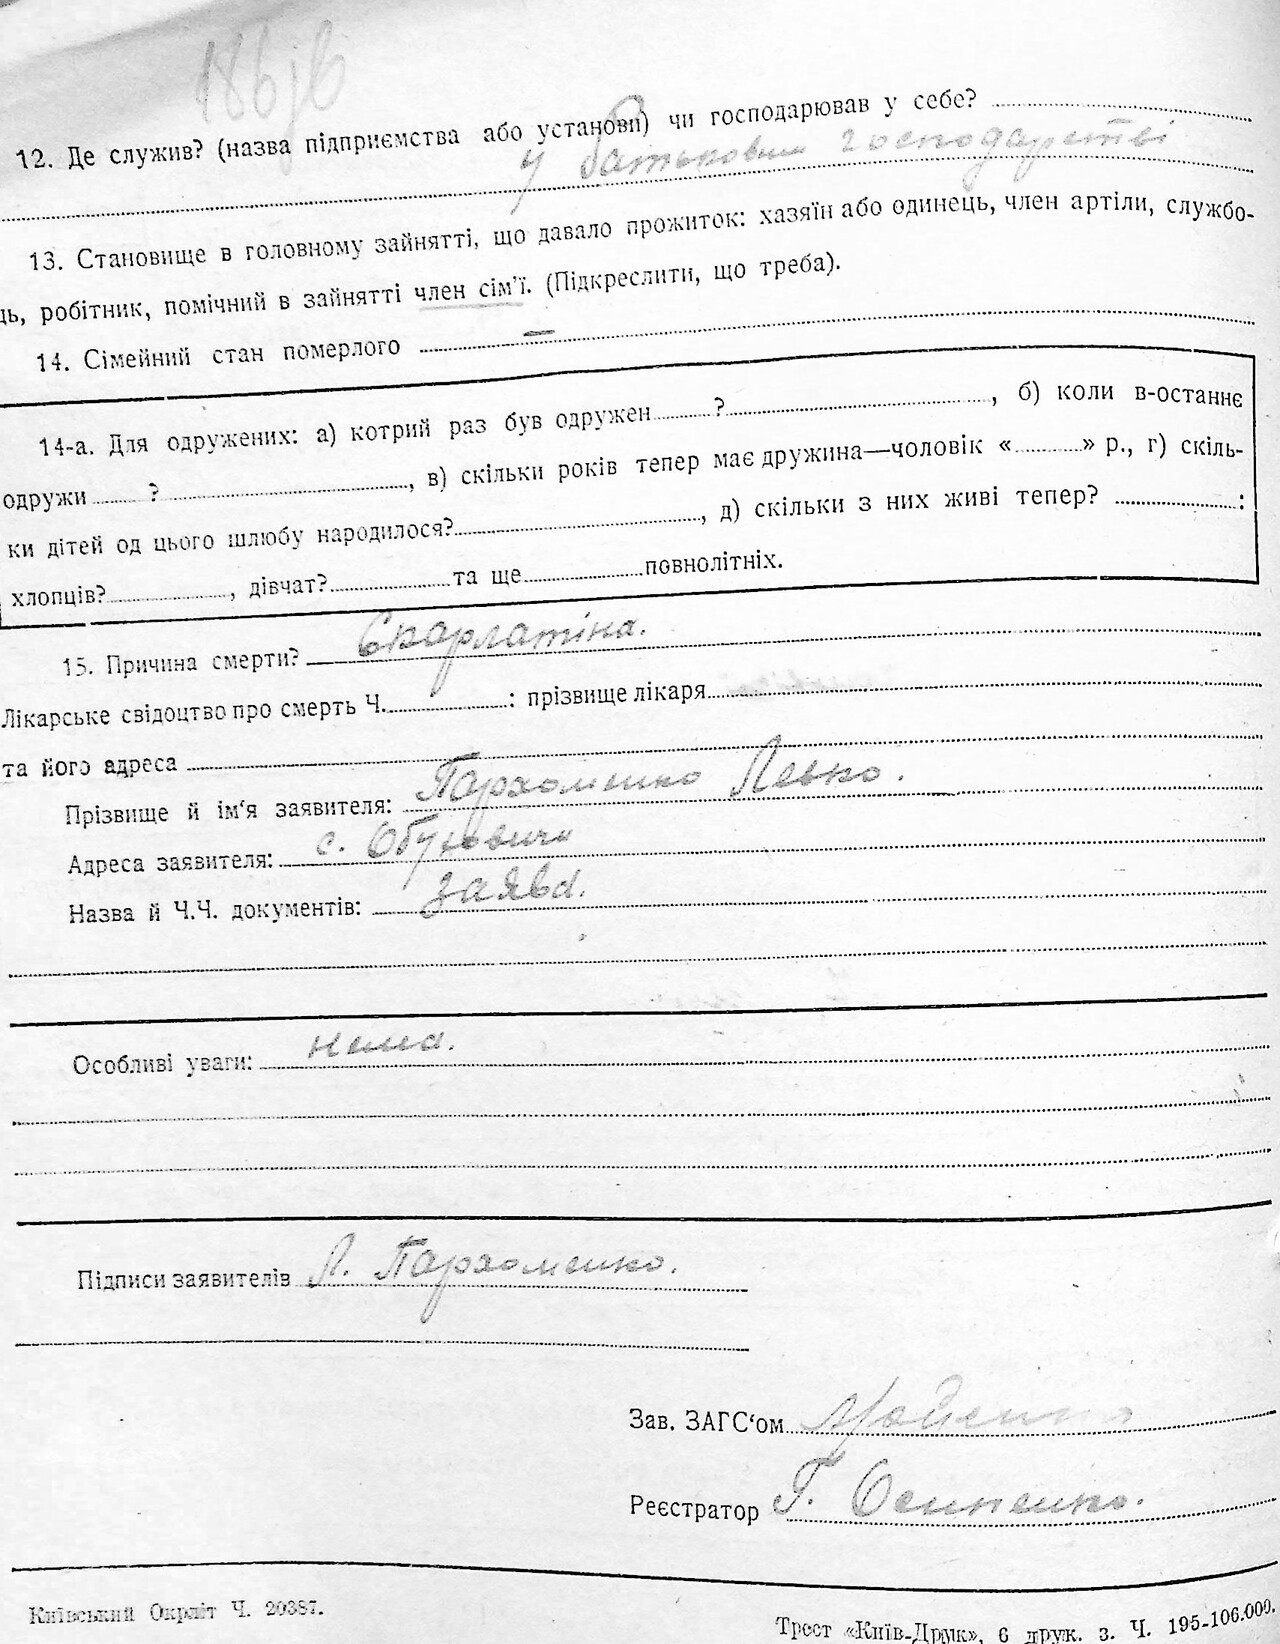 186зв
12. Де служив? (назва підприємства або установи) чи господарював у себе?
у батьковім господарстві
13. Становище в головному зайнятті, що давало прожиток: хазяїн або одинець, член артіли, службо-
ць, робітник, помічний в зайнятті член сім’ї. (Підкреслити, що треба).
14. Сімейний стан померлого —
14-а. Для одружених: а) котрий раз був одружен ? , б) коли в-останнє
одружи ? , в) скільки років тепер має дружина—чоловік « » р., г) скіль-
ки дітей од цього шлюбу народилося? , д) скільки з них живі тепер? :
хлопців? , дівчат? та ще повнолітніх.
15. Причина смерти? Скарлатіна.
Лікарське свідоцтво про смерть Ч. : прізвище лікаря
та його адреса
Прізвище й ім‘я заявителя: Пархоменко Левко.
Адреса заявителя: с. Обуховичи
Назва й Ч.Ч. документів: заява.
Особливі уваги: нема.
Підписи заявителів Л. Пархоменко.
Зав. ЗАГС‘ом
Реєстратор Г. Осипенко.
Київський Окрліт Ч. 20387.
Трест «Київ-Друк», 6 друк. з. Ч. 195-106.000.